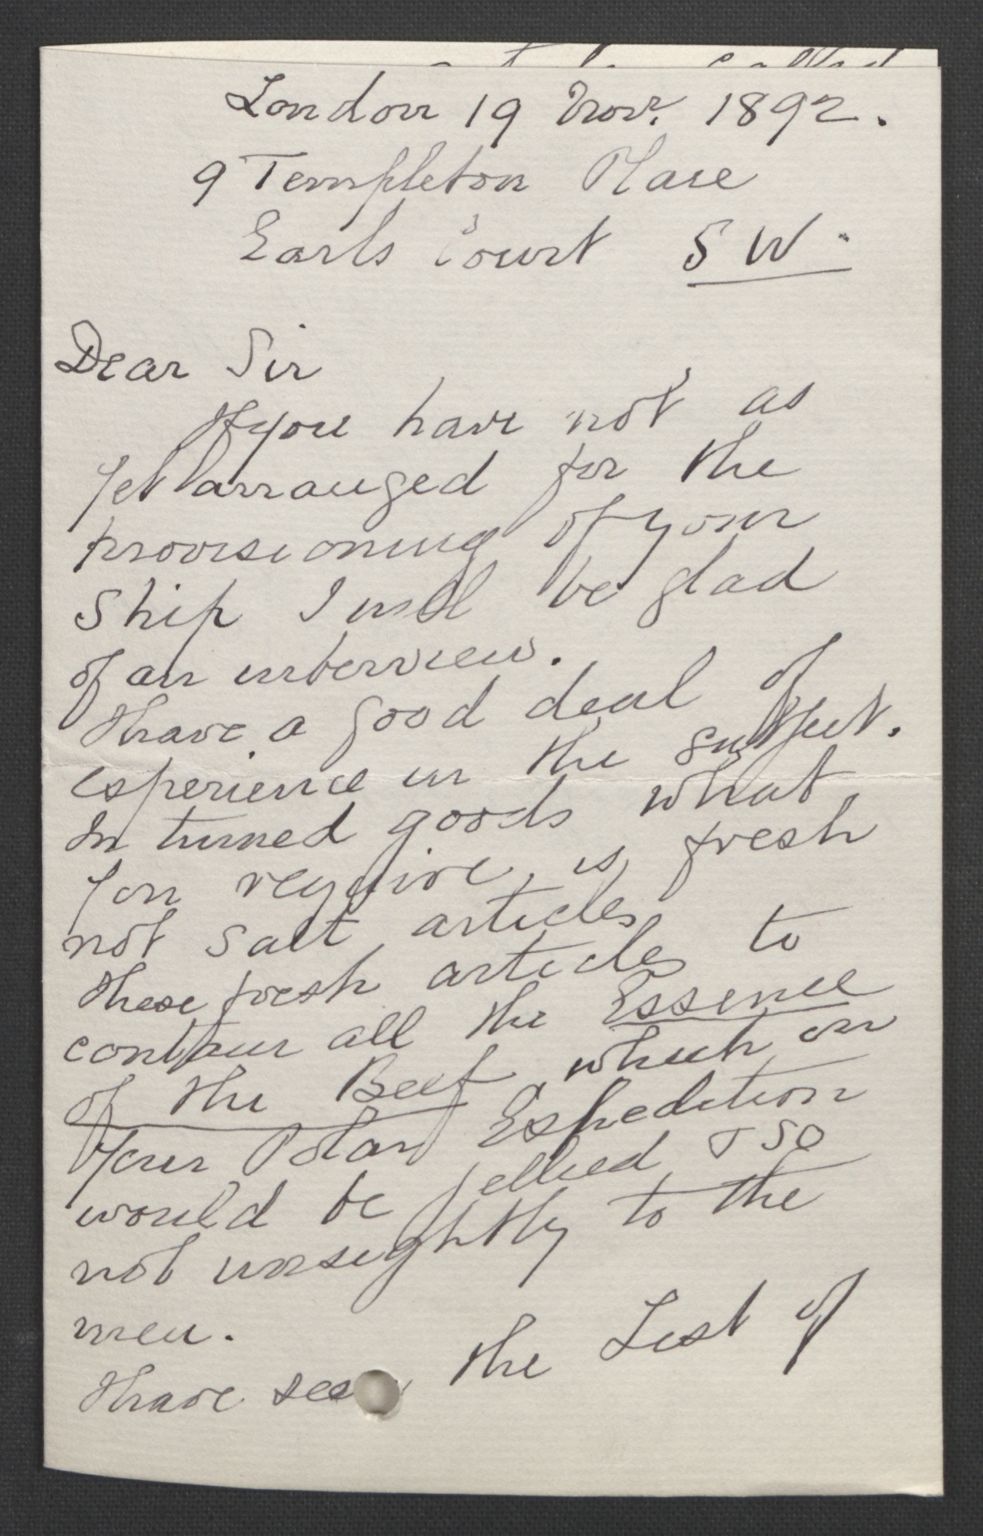 London 19 Novr. 1892.
9 Templeton Place
Earls Court S W.
Dear Sir
If you have not as
yet arranged for the
provisioning of your
Ship I will be glad
of an interview.
I have a good deal of
experience in the subject.
In tinned goods what
you require is fresh
not salt articles
these fresh articles to
contain all the Essence
of the Beef which on
your Polar Expedition
would be jellied & so
not unsightly to the
men.
I have seen the List of